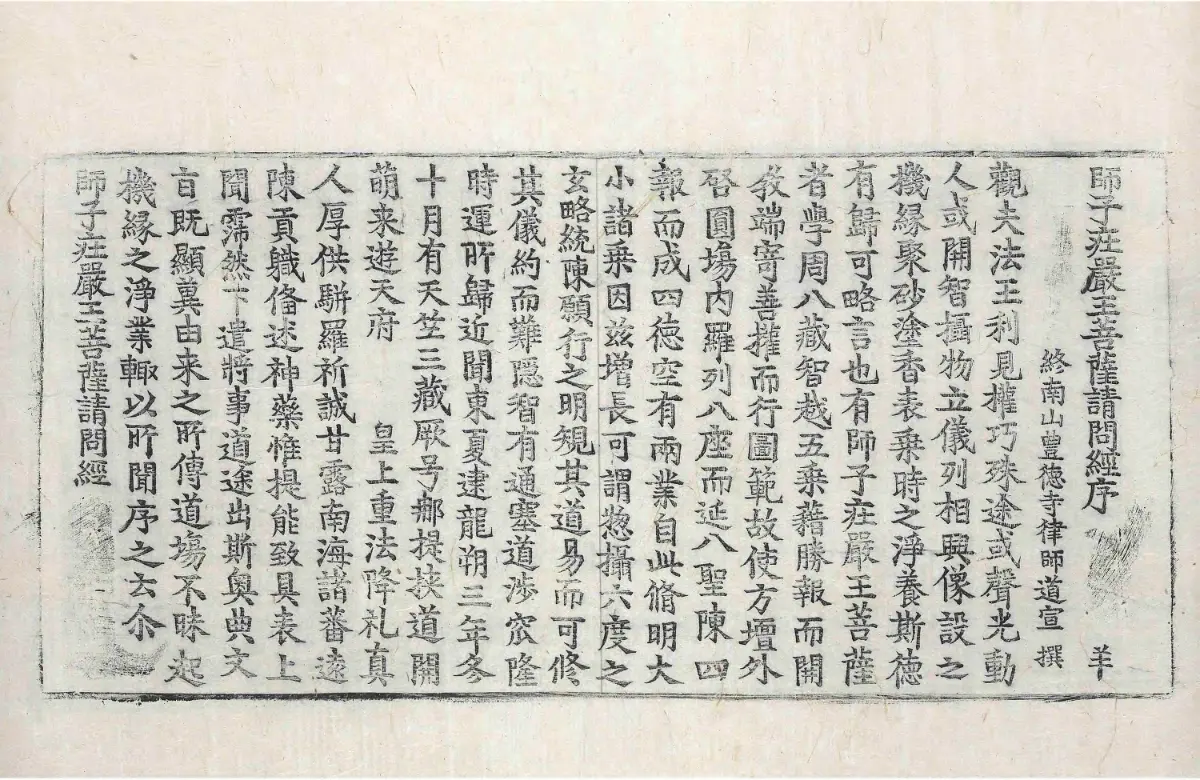 師子莊嚴王菩薩請問經序 羊
終南山豊德寺律師道宣 撰
觀夫法王利見權巧殊途或聲光動
人或開智攝物立儀列相興像設之
機緣聚砂塗香表乗時之淨養斯德
有歸可略言也有師子莊嚴王菩薩
者學周八藏智越五乗藉勝報而開
教端寄善權而行圖範故使方壇外
啓圓塲内羅列八座而延八聖陳四
報而成四德空有兩業自此脩明大
小諸乗因兹增長可謂惣攝六度之
玄略統陳願行之明規其道易而可修
其儀約而難隱智有通塞道涉窊隆
時運所歸近聞東夏逮龍朔三年冬
十月有天竺三藏厥号郍提挾道開
萌来遊天府 皇上重法降礼真
人厚供駢羅祈誠甘露南海諸蕃遠
陳貢軄俻述神藥惟提能致具表上
聞霈然下遣將事道途出斯奥典文
言既顯兾由来之所傳道塲不昧起
機緣之淨業輙以所聞序之云尒
師子莊嚴王菩薩請問經